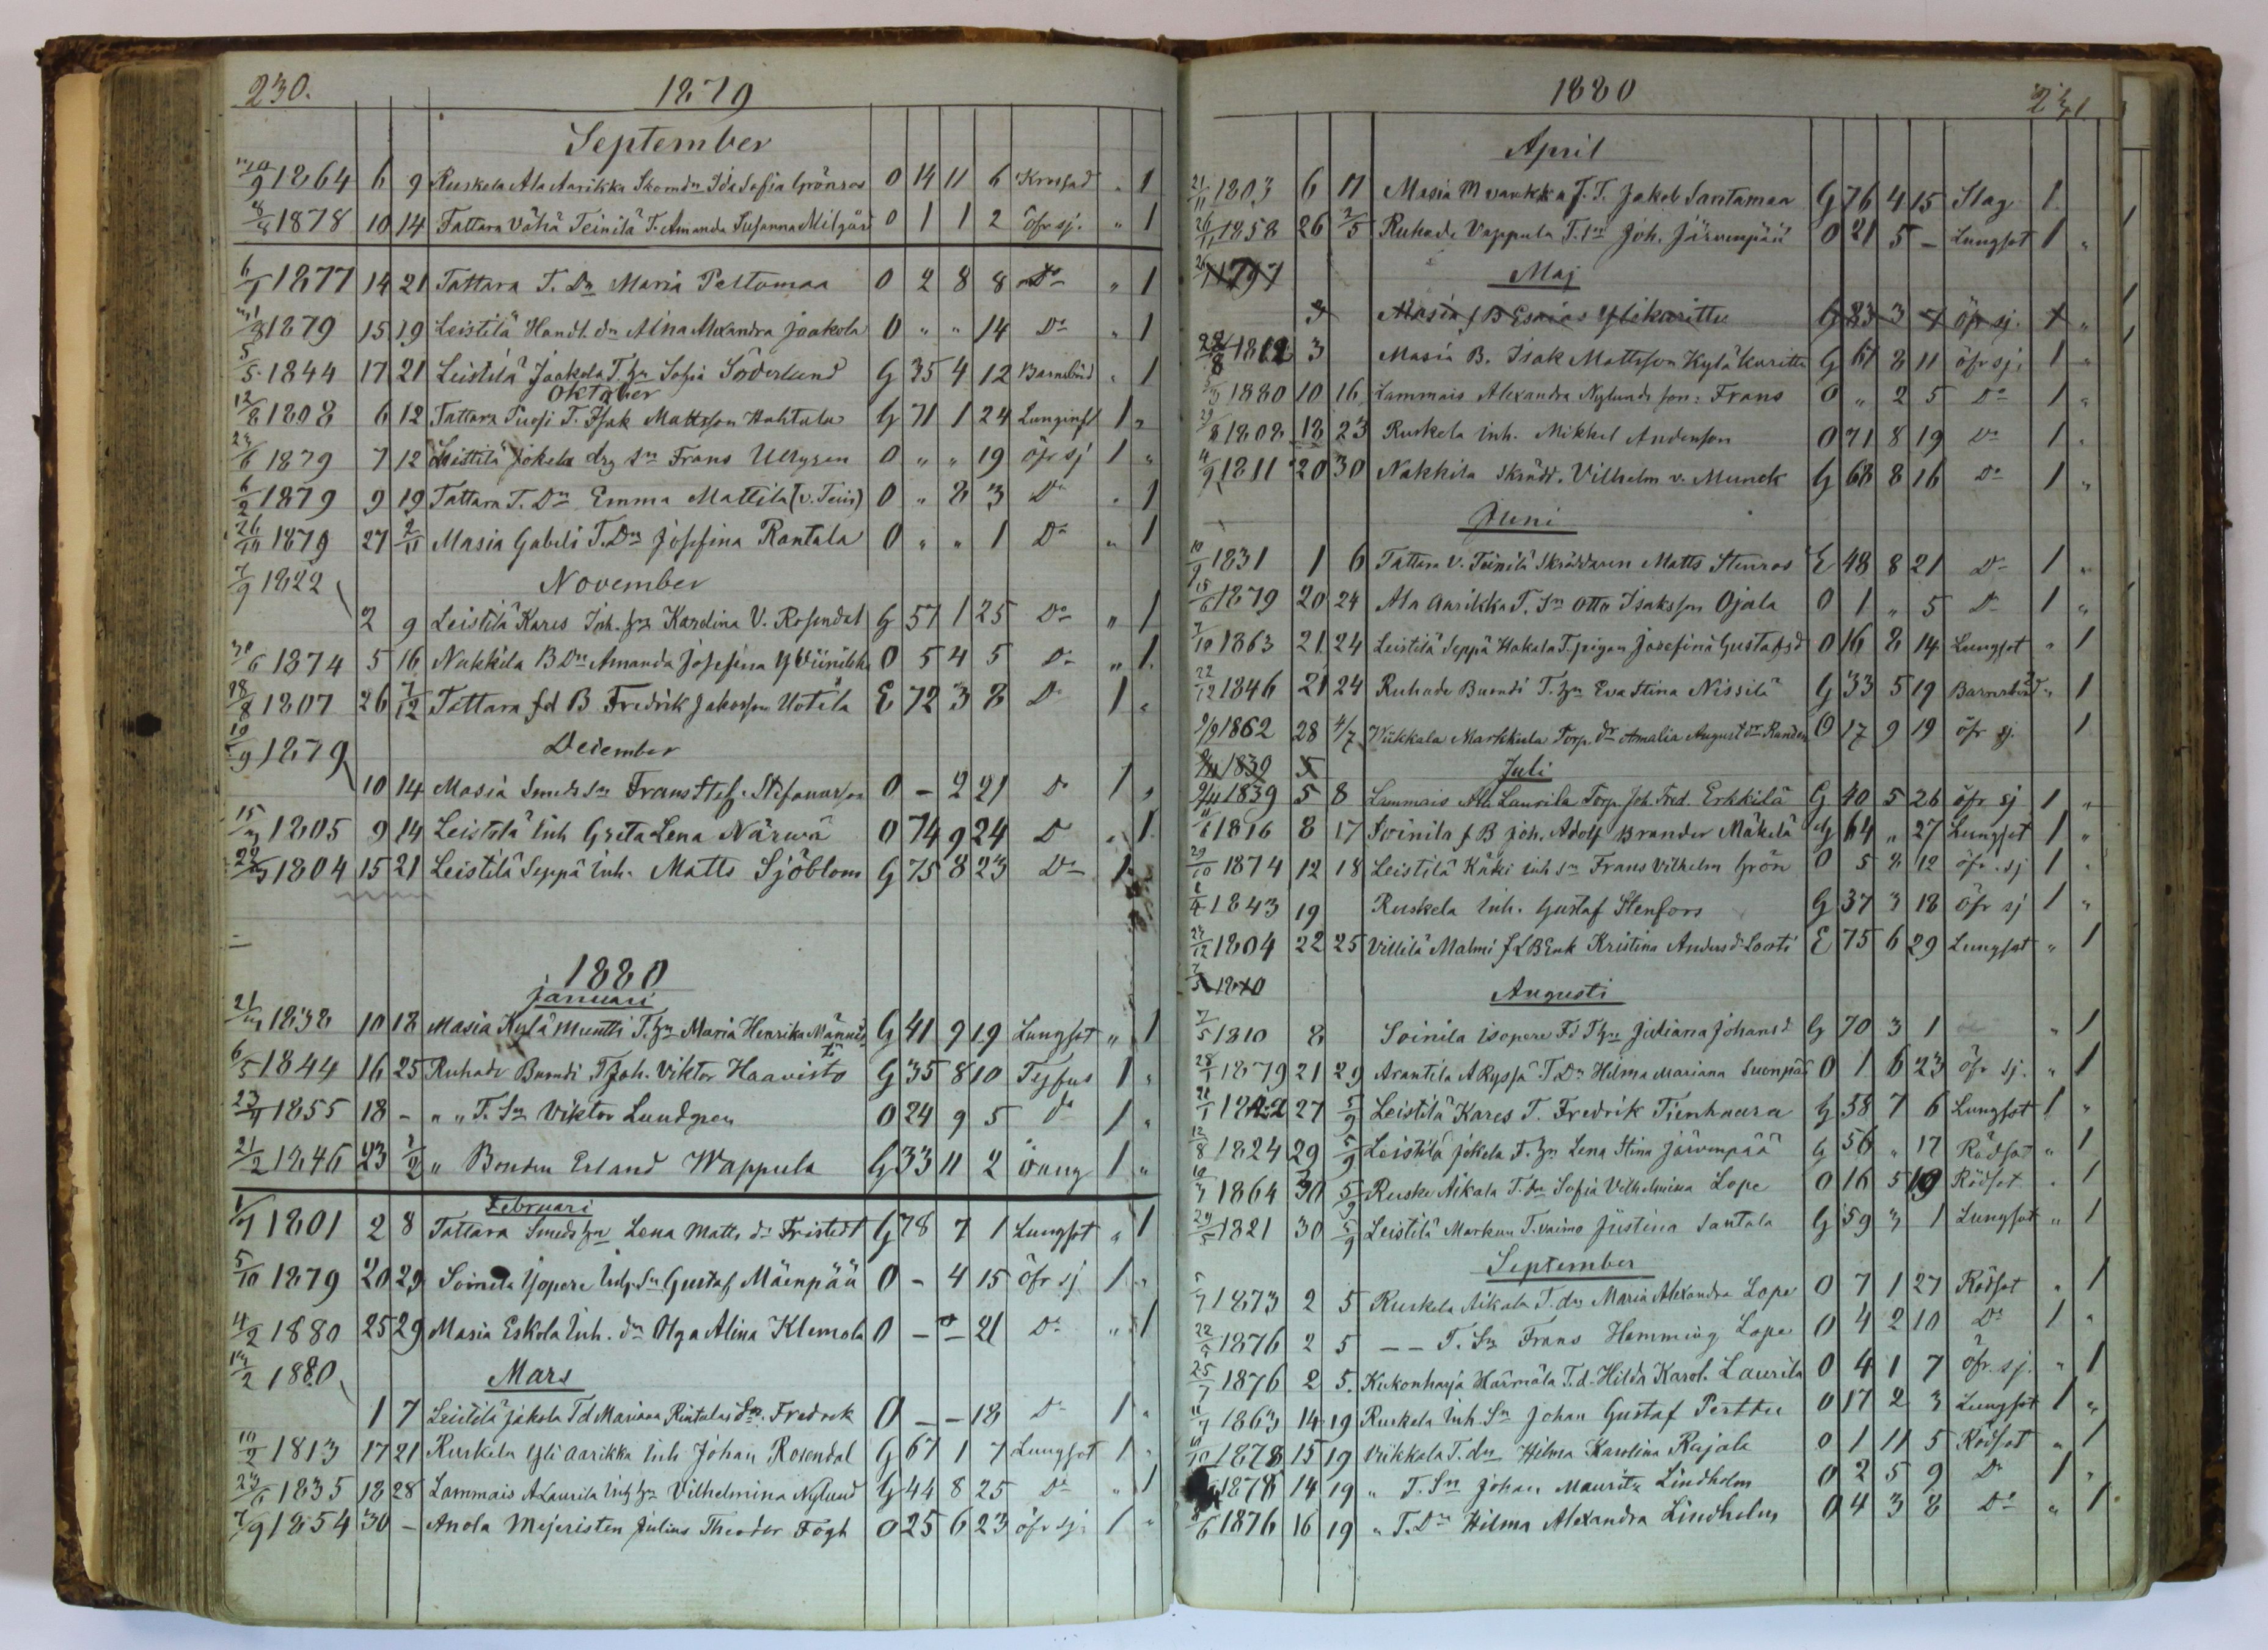 230.
1879
September
10/9 1864 6 9 Ruskela Ala Aarikka Skomdn Ida Sofia Grönros O 14 11 6 " 1
1878 10 14 Tattara Vähä Teinilä T. Amanda Susanna O 1 1 2 öfr sj. " 1
6/1 1877 14 21 Tattara T. Dn Maria Peltomaa O 2 8 8 Do " 1
1879 15 19 Leistilä Handl. dn Alna Alexandra Jaakola O " " 14 Do " 1
5/5 1844 17 21 Leistilä Jaakola T. hn Sofia Söderlund G 35 4 12 Barnsbörd " 1
Oktober
12/8 1808 6 12 Tattara T. Isak Mattsson Hahtala G 71 1 24 Lunginfl 1 "
1879 7 12 Leistilä Jokela drg Sn Frans O " " 19 öfr sj 1 "
6/2 1879 9 19 Tattara T. Dn Emma Mattila (v. Tein) O " 8 3 Do " 1
26/10 1879 27 2/11 Masia Gabeli T. Dn Josefina Rantala O " " 1 Do " 1
7/9 1822
November
2 9 Leistilä Kares Inh. hn Karolina V. Rosendal G 57 1 25 Do " 1
30/6 1874 5 16 Nakkila B Dn Amanda Josefina O 5 4 5 Do " 1
18/8 1807 26 7/12 Tattara fd B Fredrik Jakosson Uotila E 72 3 8 Do 1 "
19/9 1879
December
10 14 Masia Smeds Sn Frans Stef. Stefansson O - 2 21 Do 1 "
15/ 1805 9 14 Leistilä Inh Greta Lena Närvä O 74 9 24 D " 1
1804 15 21 Leistilä Seppä Inh. Matts Sjöblom G 75 8 23 Do 1
1880
Januari
21/ 1838 10 18 Masia Kylä Muntti T. hn Maria Henrika G 41 9 19 Lungsot " 1
6/5 1844 16 25 Ruhade Buendi T Joh. Viktor Haavisto G 35 8 10 Tyfus 1 "
23/4 1855 18 - " " T. Sn Viktor Lundgren O 24 9 5 do 1 "
21/2 1846 23 1/2 " Bonden Erland Wappula G 33 11 2 1 "
Februari
1/7 1801 2 8 Tattara Smeds hn Lena Matts dr Fristedt G 78 7 1 Lungsot " 1
5/10 1879 20 29 Soinila Yopere Inh. Sn Gustaf Mäenpää O - 4 15 öfr sj 1 "
4/2 1880 25 29 Masia Eskola Inh. dn Olga Alina Klemola O - - 21 Do " 1
1880
Mars
1 7 Leistilä Jokela T d Mariana Rintalas Sn. Fredrik O - - 18 Do 1 "
10/2 1813 17 21 Ruskela Yli Aarikka Inh Johan Rosendal G 67 1 7 Lungsot 1 "
23/6 1835 18 28 Lammais A Laurila Inh hn Vilhelmina Nylund G 44 8 25 Do " 1
7/9 1854 30 - Anola Mejeristen Julius Theodor Fogh O 25 6 23 öfr sj. 1 "
1880
231
April
21/11 1803 6 11 Masia f. T. Jakob Santamaa G 76 4 15 Slag 1
26/11 1858 26 2/5 Ruhade Vappula T. Sn Joh. Järvenpää O 21 5 - Lungsot 1 "
1797
Maj
3 Masia f B Esaias Ylikaritta G 83 3 7 öfr sj. 1 "
22/8 1812 3 Masia B. Isak Mattsson Kyläkaritta G 67 8 11 öfr sj. 1 "
1880 10 16 Lammais Alexandra Nylunds son: Frans O " 2 5 Do 1 "
29/8 1808 18 23 Ruskela Inh. Mikkel Andersson O 71 8 19 Do 1 "
4/9 1811 20 30 Nakkila Skrädd. Vilhelm v. Munck G 68 8 16 Do 1 "
Juni
10/9 1831 1 6 Tattara V. Teinilä Skräddaren Matts Stenros E 48 8 21 Do 1 "
15/6 1879 20 24 Ala Aarikka T. Sn Otto Isaksson Ojala O 1 " 5 Do 1 "
7/10 1863 21 24 Leistilä Seppä Hakala T. pigan Josefina Gustafsd O 16 8 14 Lungsot " 1
22/12 1846 21 24 Ruhade Buendi T. hn Eva Stina Nissilä G 33 5 19 Barnsbörd " 1
9/9 1862 28 4/7 Viikkala Markkula Torp. dr Amalia August dr O 17 9 19 öfr sj. 1
1839 5
Juli
1839 5 8 Lammais Ali Laurila Torp. Joh. Fred. Erkkilä G 40 5 26 öfr sj 1 "
1816 8 17 Soinila f B Joh. Adolf Brander Mäkelä G 64 " 27 Lungsot 1 "
29/10 1874 12 18 Leistilä Käki inh Sn Frans Vilhelm Grön O 5 8 12 öfr. sj 1 "
1/4 1843 19 Ruskela Inh. Gustaf Stenfors G 37 3 18 öfr sj 1 "
23/12 1804 22 25 Villilä Malmi Kristina Anders dr E 75 6 29 Lungsot " 1
7/5 1810
Augusti
7/5 1810 8 Soinila isopere Fd T hn Juliana Johansd. G 70 3 1 " 1
28/1 1879 21 29 Arantila A Ryssä T Dn Hilma Mariana O 1 6 23 öfr sj. " 1
1822 27 5/9 Leistilä Kares T. Fredrik Tienhaara G 58 7 6 Lungsot 1 "
12/8 1824 29 5/9 Leistilä Jokela T. hn Lena Stina Järvenpää G 56 " 17 Rödsot " 1
1864 30 5/9 Ruske Aikala T. dn Sofia Vilhelmina Lope O 16 5 19 Rödsot " 1
29/5 1821 30 5/9 Leistilä Markun T. Justina Santala G 59 3 1 Lungsot " 1
September
5/7 1873 2 5 Ruskela Aikala T. dn Maria Alexandra Lope O 7 1 27 Rödsot " 1
22/6 1876 2 5 - - T. Sn Frans Hemming Lope O 4 2 10 Do 1 "
25/7 1876 2 5. Kukonharja Härmälä T. d. Hilda Karol. Laurila O 4 1 7 öfr. sj. " 1
11/7 1863 14 19 Ruskela Inh. Sn Johan Gustaf Perttu O 17 2 3 Lungsot 1 "
1878 15 19 Viikkala T. dn Hilma Karolina Rajala O 1 11 5 Rödsot " 1
1878 14 19 " T. Sn Johan Mauritz Lindholm O 2 5 9 Do 1 "
8/6 1876 16 19 " T. Dn Hilma Alexandra Lindholm O 4 3 8 Do " 1